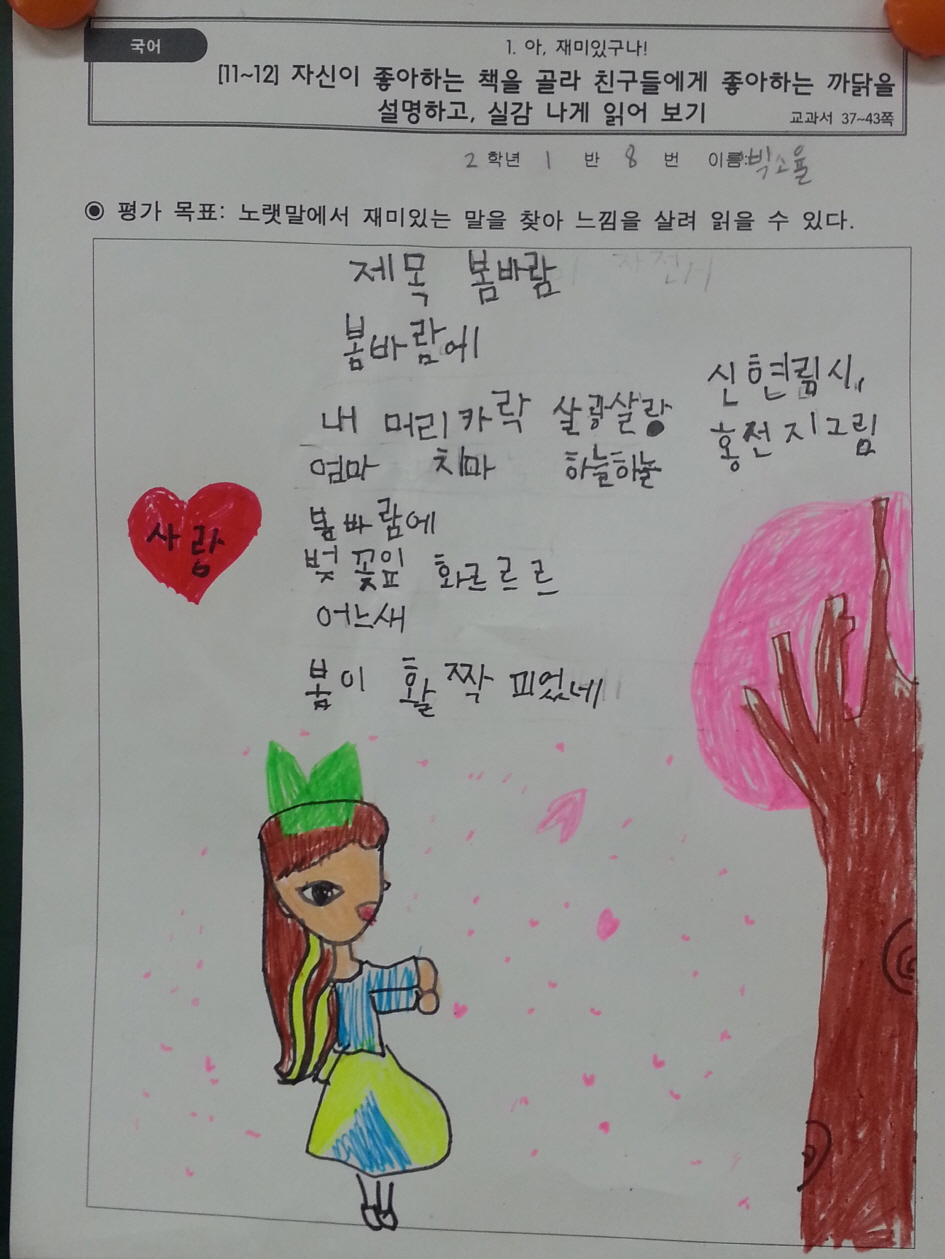 국어
1. 아, 재미있구나!
[11~12] 자신이 좋아하는 책을 골라 친구들에게 좋아하는 까닭을
설명하고, 실감 나게 읽어 보기
교과서 37~43쪽
2 학년 1 반 8 번 이름:박소율
◉ 평가 목표: 노랫말에서 재미있는 말을 찾아 느낌을 살려 읽을 수 있다.
제목 봄바람
봄바람에
신현림시,
홍전지그림
내 머리카락 살랑살랑
엄마 치마 하늘하늘
봄빠람에
벚꽃잎 화르르르
어느새
봄이 활짝 피었네
사랑